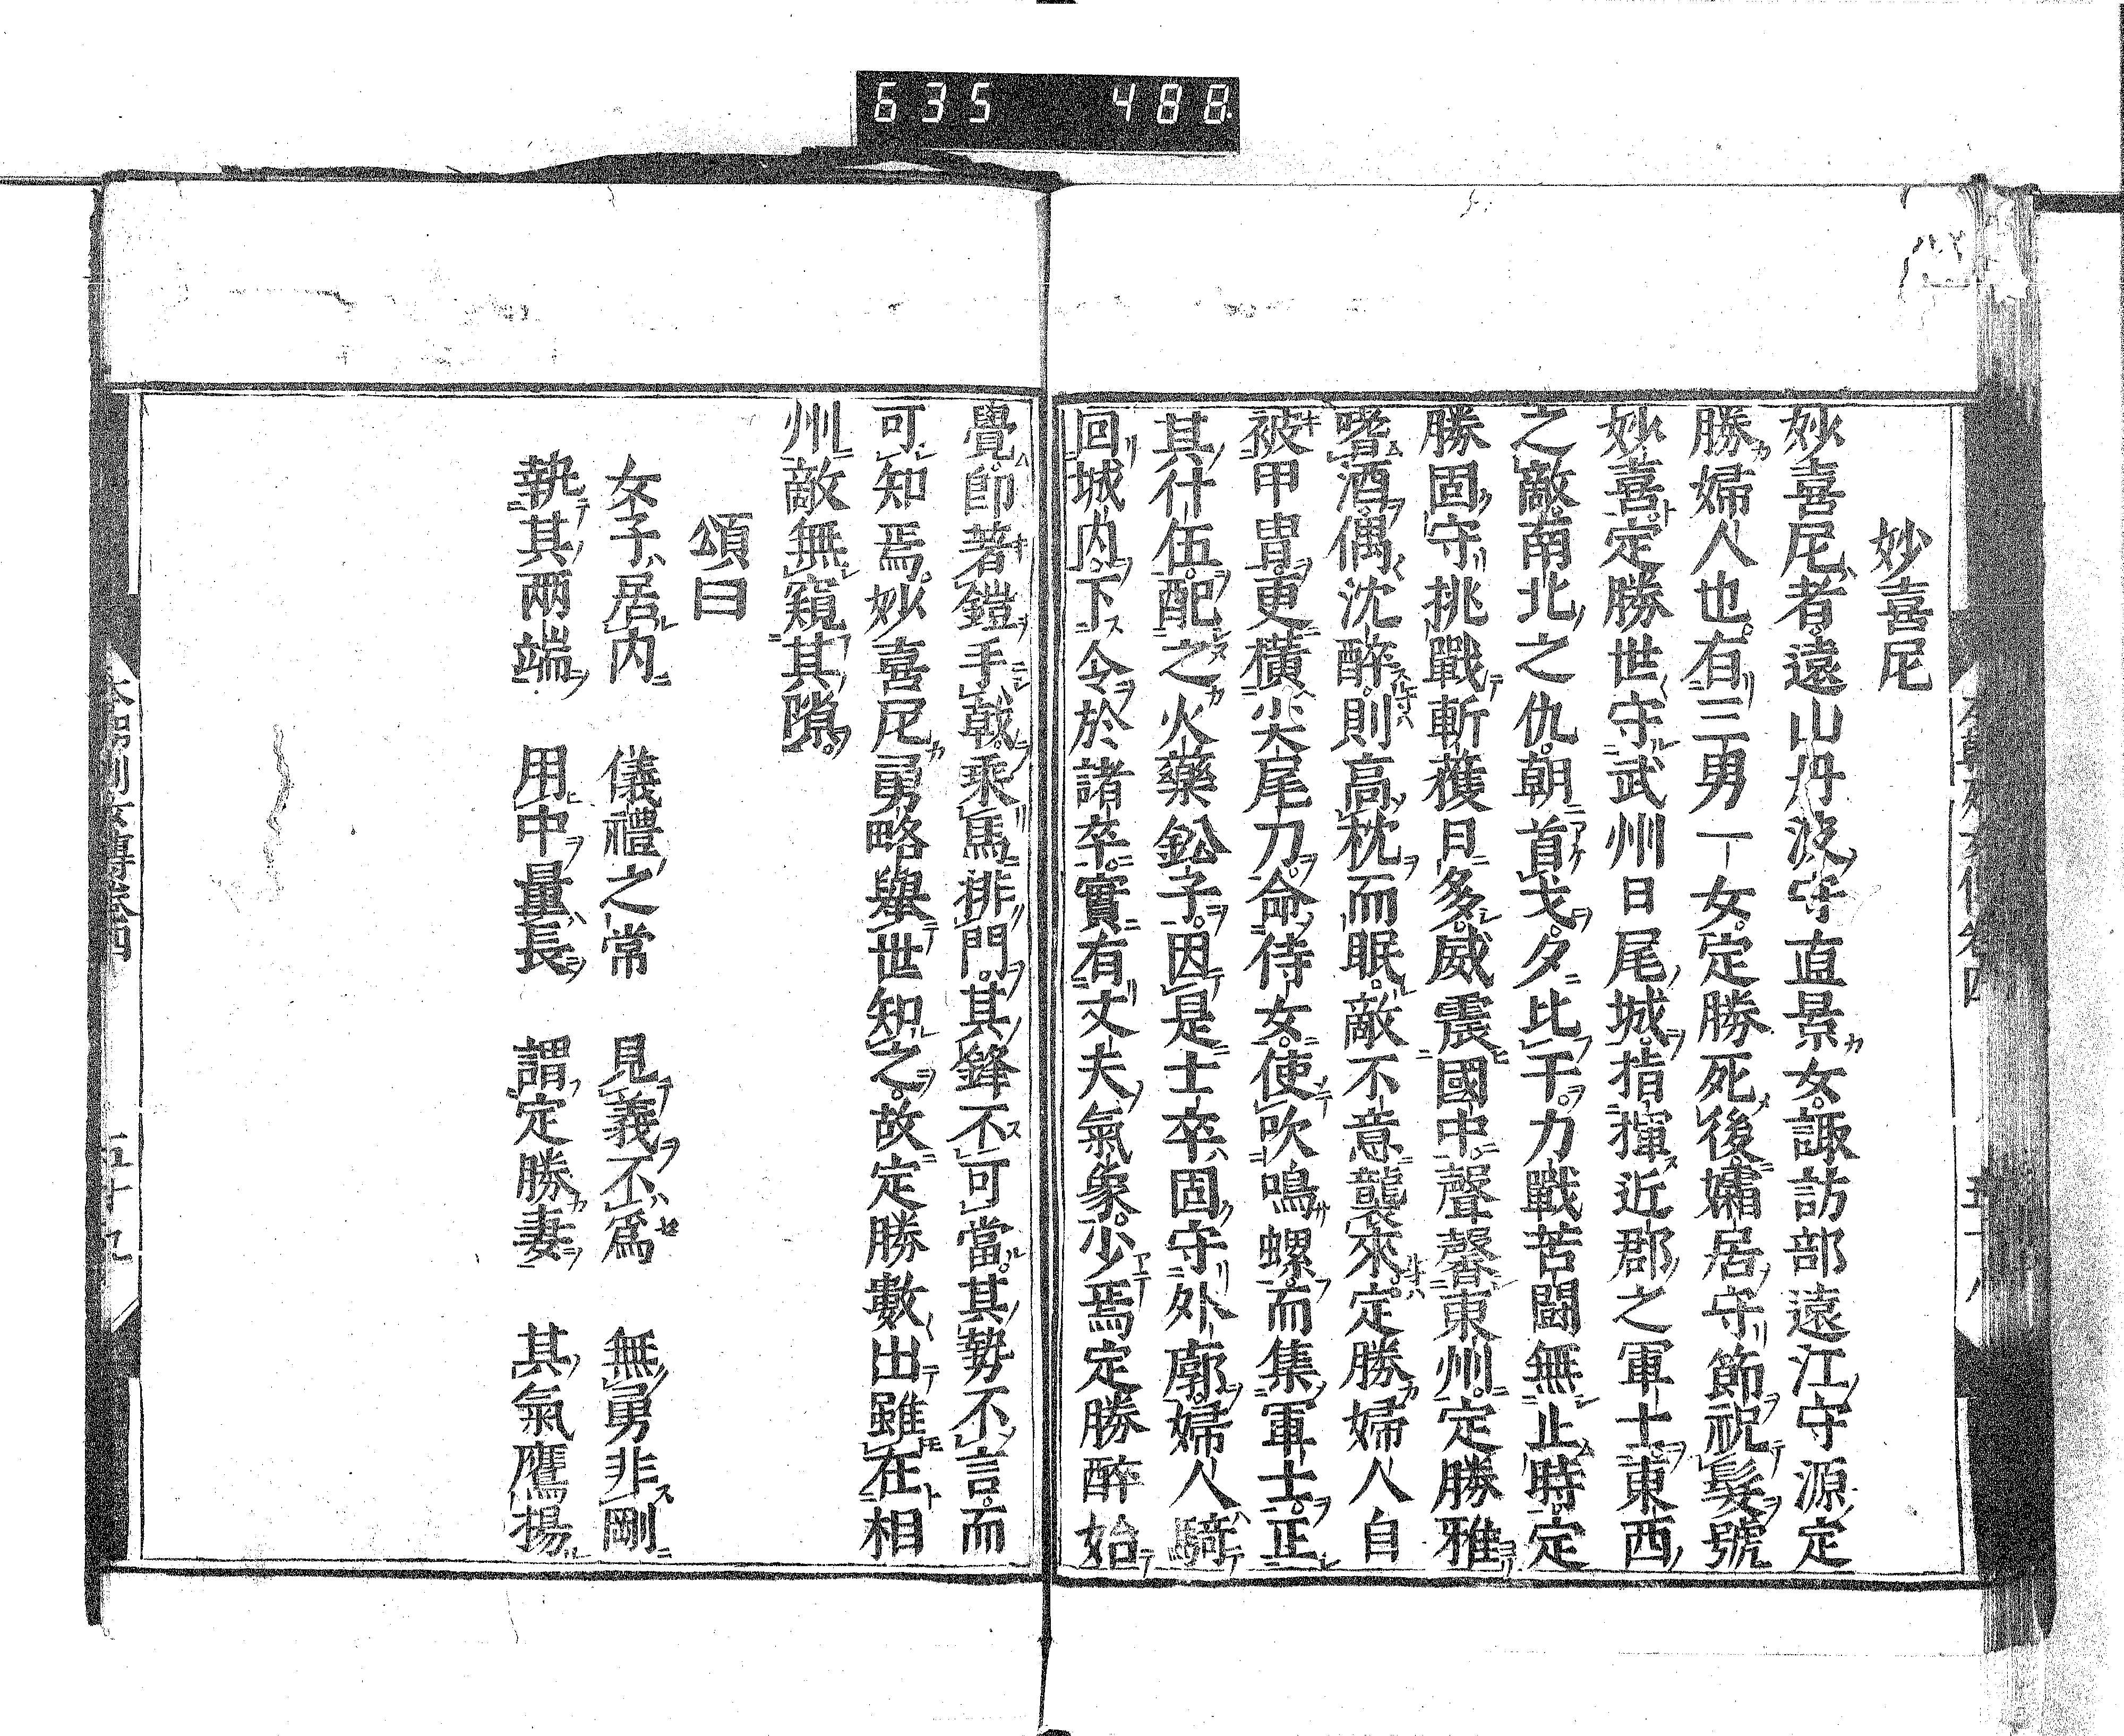 635 488
妙喜尼
妙喜尼者遠山丹波守直景女諏訪部遠江守源定
勝婦人也有三勇一女定勝死後孀居守節祝髮號
妙喜定勝世守武州日尾城指揮近郡之軍士東西
之敵南北之仇朝首戈夕比干力戰苦鬪無止時定
勝固守挑戰斬獲日多威震國中聲馨東州定勝雅
嗜酒偶沈醉則高枕而眠敵不意襲來定勝婦人自
被甲胄更橫尖尾刀命侍女使吹鳴螺而集軍士正
其什伍配之火藥鈆子因是士卒固守外廓婦人騎
回城内下令於諸卒實有丈夫氣象少焉定勝醉始
覺即著鎧手戟乘馬排門其鋒不可當其勢不言而
可知焉妙喜尼勇略舉世知之故定勝數出雖在相
州敵無窺其隙
頌曰
女子居内 儀禮之常 見義不爲 無勇非剛
執其兩端 用中量長 謂定勝妻 其氣鷹揚
本朝列女傳卷四 五十九